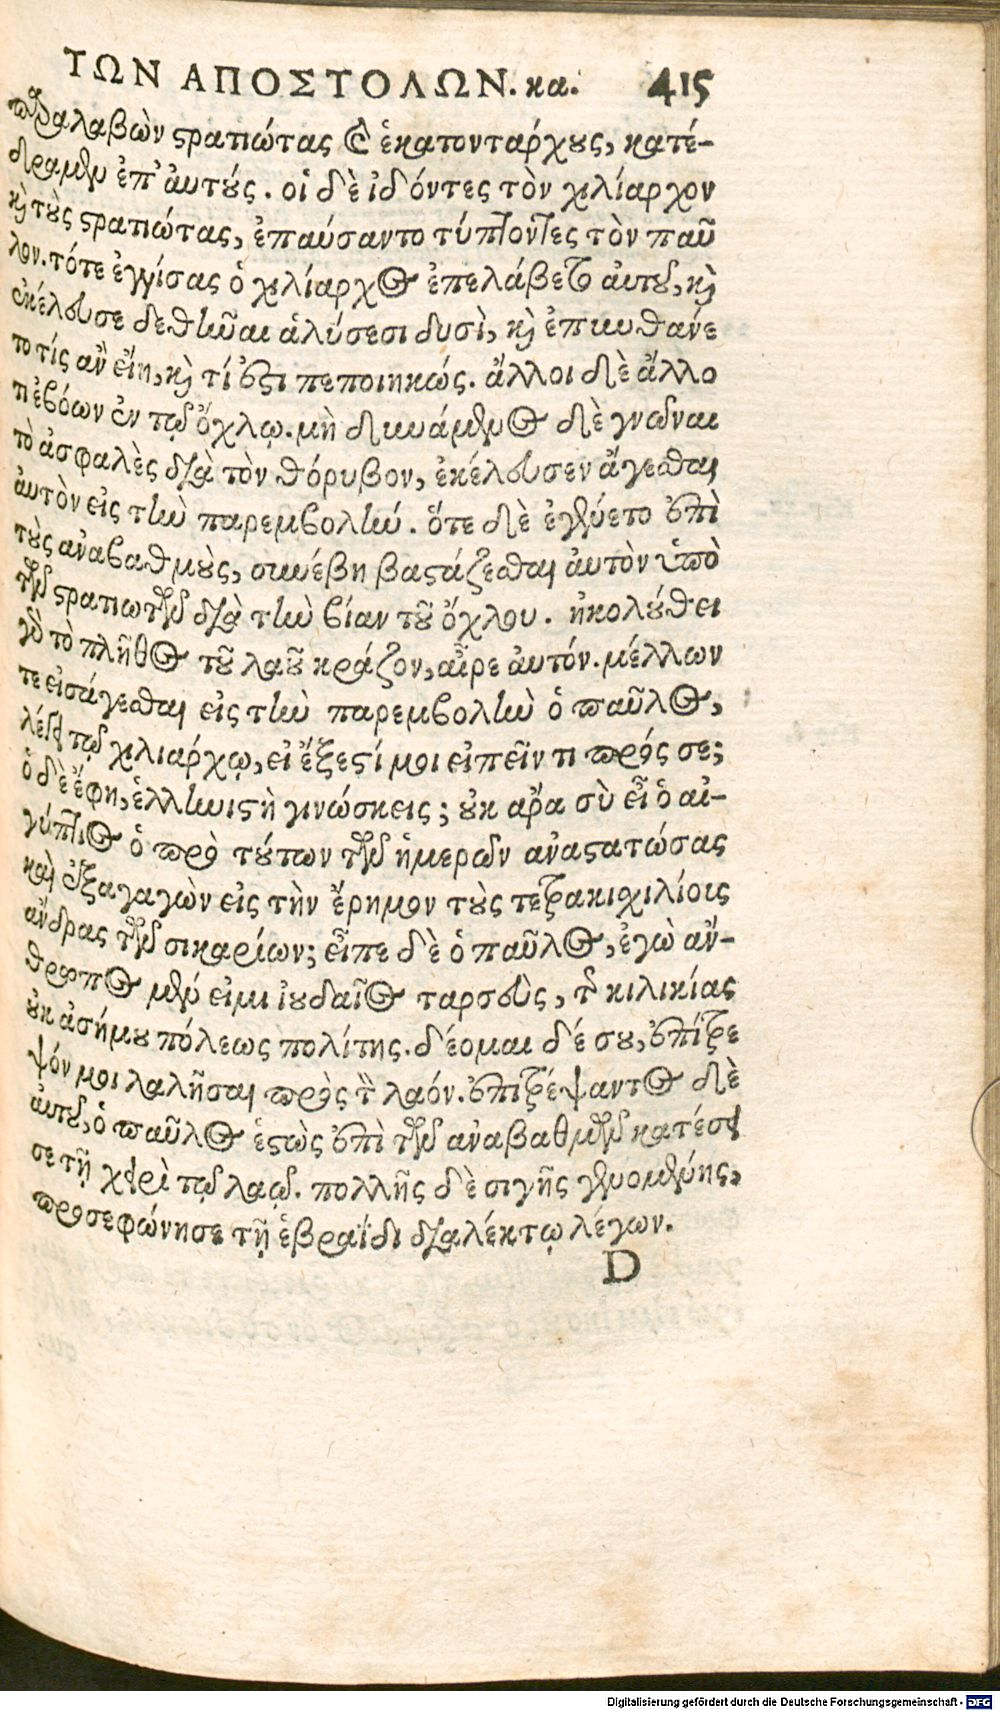 ΤΩΝ ΑΠΟΣΤΟΛΩΝ. κα. 415
παραλαβὼν στρατιώτας καὶ ἑκατοντάρχους, κατέ-
δραμεν ἐπ' ἀυτούς. οἱ δὲ ἰδόντες τὸν χιλίαρχον
καὶ τοὺς στρατιώτας, ἐπαύσαντο τύπτοντες τὸν παῦ
λον. τότε ἐγγίσας ὁ χιλίαρχος ἐπελάβετο ἀυτοῦ, καὶ
ἐκέλευσε δεθῆναι ἁλύσεσι δυσὶ, καὶ ἐπυνθάνε
το τίς ἂν εἴη, καὶ τί ἐστι πεποιηκώς. ἄλλοι δὲ ἄλλο
τι ἐβόων ἐν τῷ ὄχλῳ. μὴ δυνάμενος δὲ γνῶναι
τὸ ἀσφαλὲς διὰ τὸν θόρυβον, ἐκέλευσεν ἄγεσθαι
ἀυτὸν εἰς τὴν παρεμβολήν. ὅτε δὲ ἐγένετο ἐπὶ
τοὺς ἀναβαθμοὺς, συνέβη βαστάζεσθαι ἀυτὸν ὑπὸ
τῶν στρατιωτῶν διὰ τὴν βίαν τοῦ ὄχλου. ἠκολούθει
γὰρ τὸ πλῆθος τοῦ λαοῦ κράζον, αἶρε ἀυτόν. μέλλων
τε εἰσάγεσθαι εἰς τὴν παρεμβολὴν ὁ παῦλος,
λέγει τῷ χιλιάρχῳ, εἰ ἔξεστί μοι εἰπεῖν τι πρός σε;
ὁ δὲ ἔφη, ἑλληνιστὴ γινώσκεις; οὐκ ἄρα σὺ εἶ ὁ αἰ-
γύπτιος ὁ πρὸ τούτων τῶν ἡμερῶν ἀναστατώσας
καὶ ἐξαγαγὼν εἰς τὴν ἔρημον τοὺς τετρακιχιλίοις
ἄνδρας τῶν σικαρίων; εἶπε δὲ ὁ παῦλος, ἐγὼ ἄν-
θρωπος μέν εἰμι ἰουδαῖος ταρσεὺς, τῆς κιλικίας
οὐκ ἀσήμου πόλεως πολίτης. δέομαι δέ σου, ἐπίτρε
ψόν μοι λαλῆσαι πρὸς τὸν λαόν. ἐπιτρέψαντος δὲ
ἀυτοῦ, ὁ παῦλος ἑστὼς ἐπὶ τῶν ἀναβαθμῶν κατέσει
σε τῇ χειρὶ τῷ λαῷ. πολλῆς δὲ σιγῆς γενομένης,
προσεφώνησε τῇ ἑβραΐδι διαλέκτῳ λέγων.
D
Digitalisierung gefördert durch die Deutsche Forschungsgemeinschaft - DFG